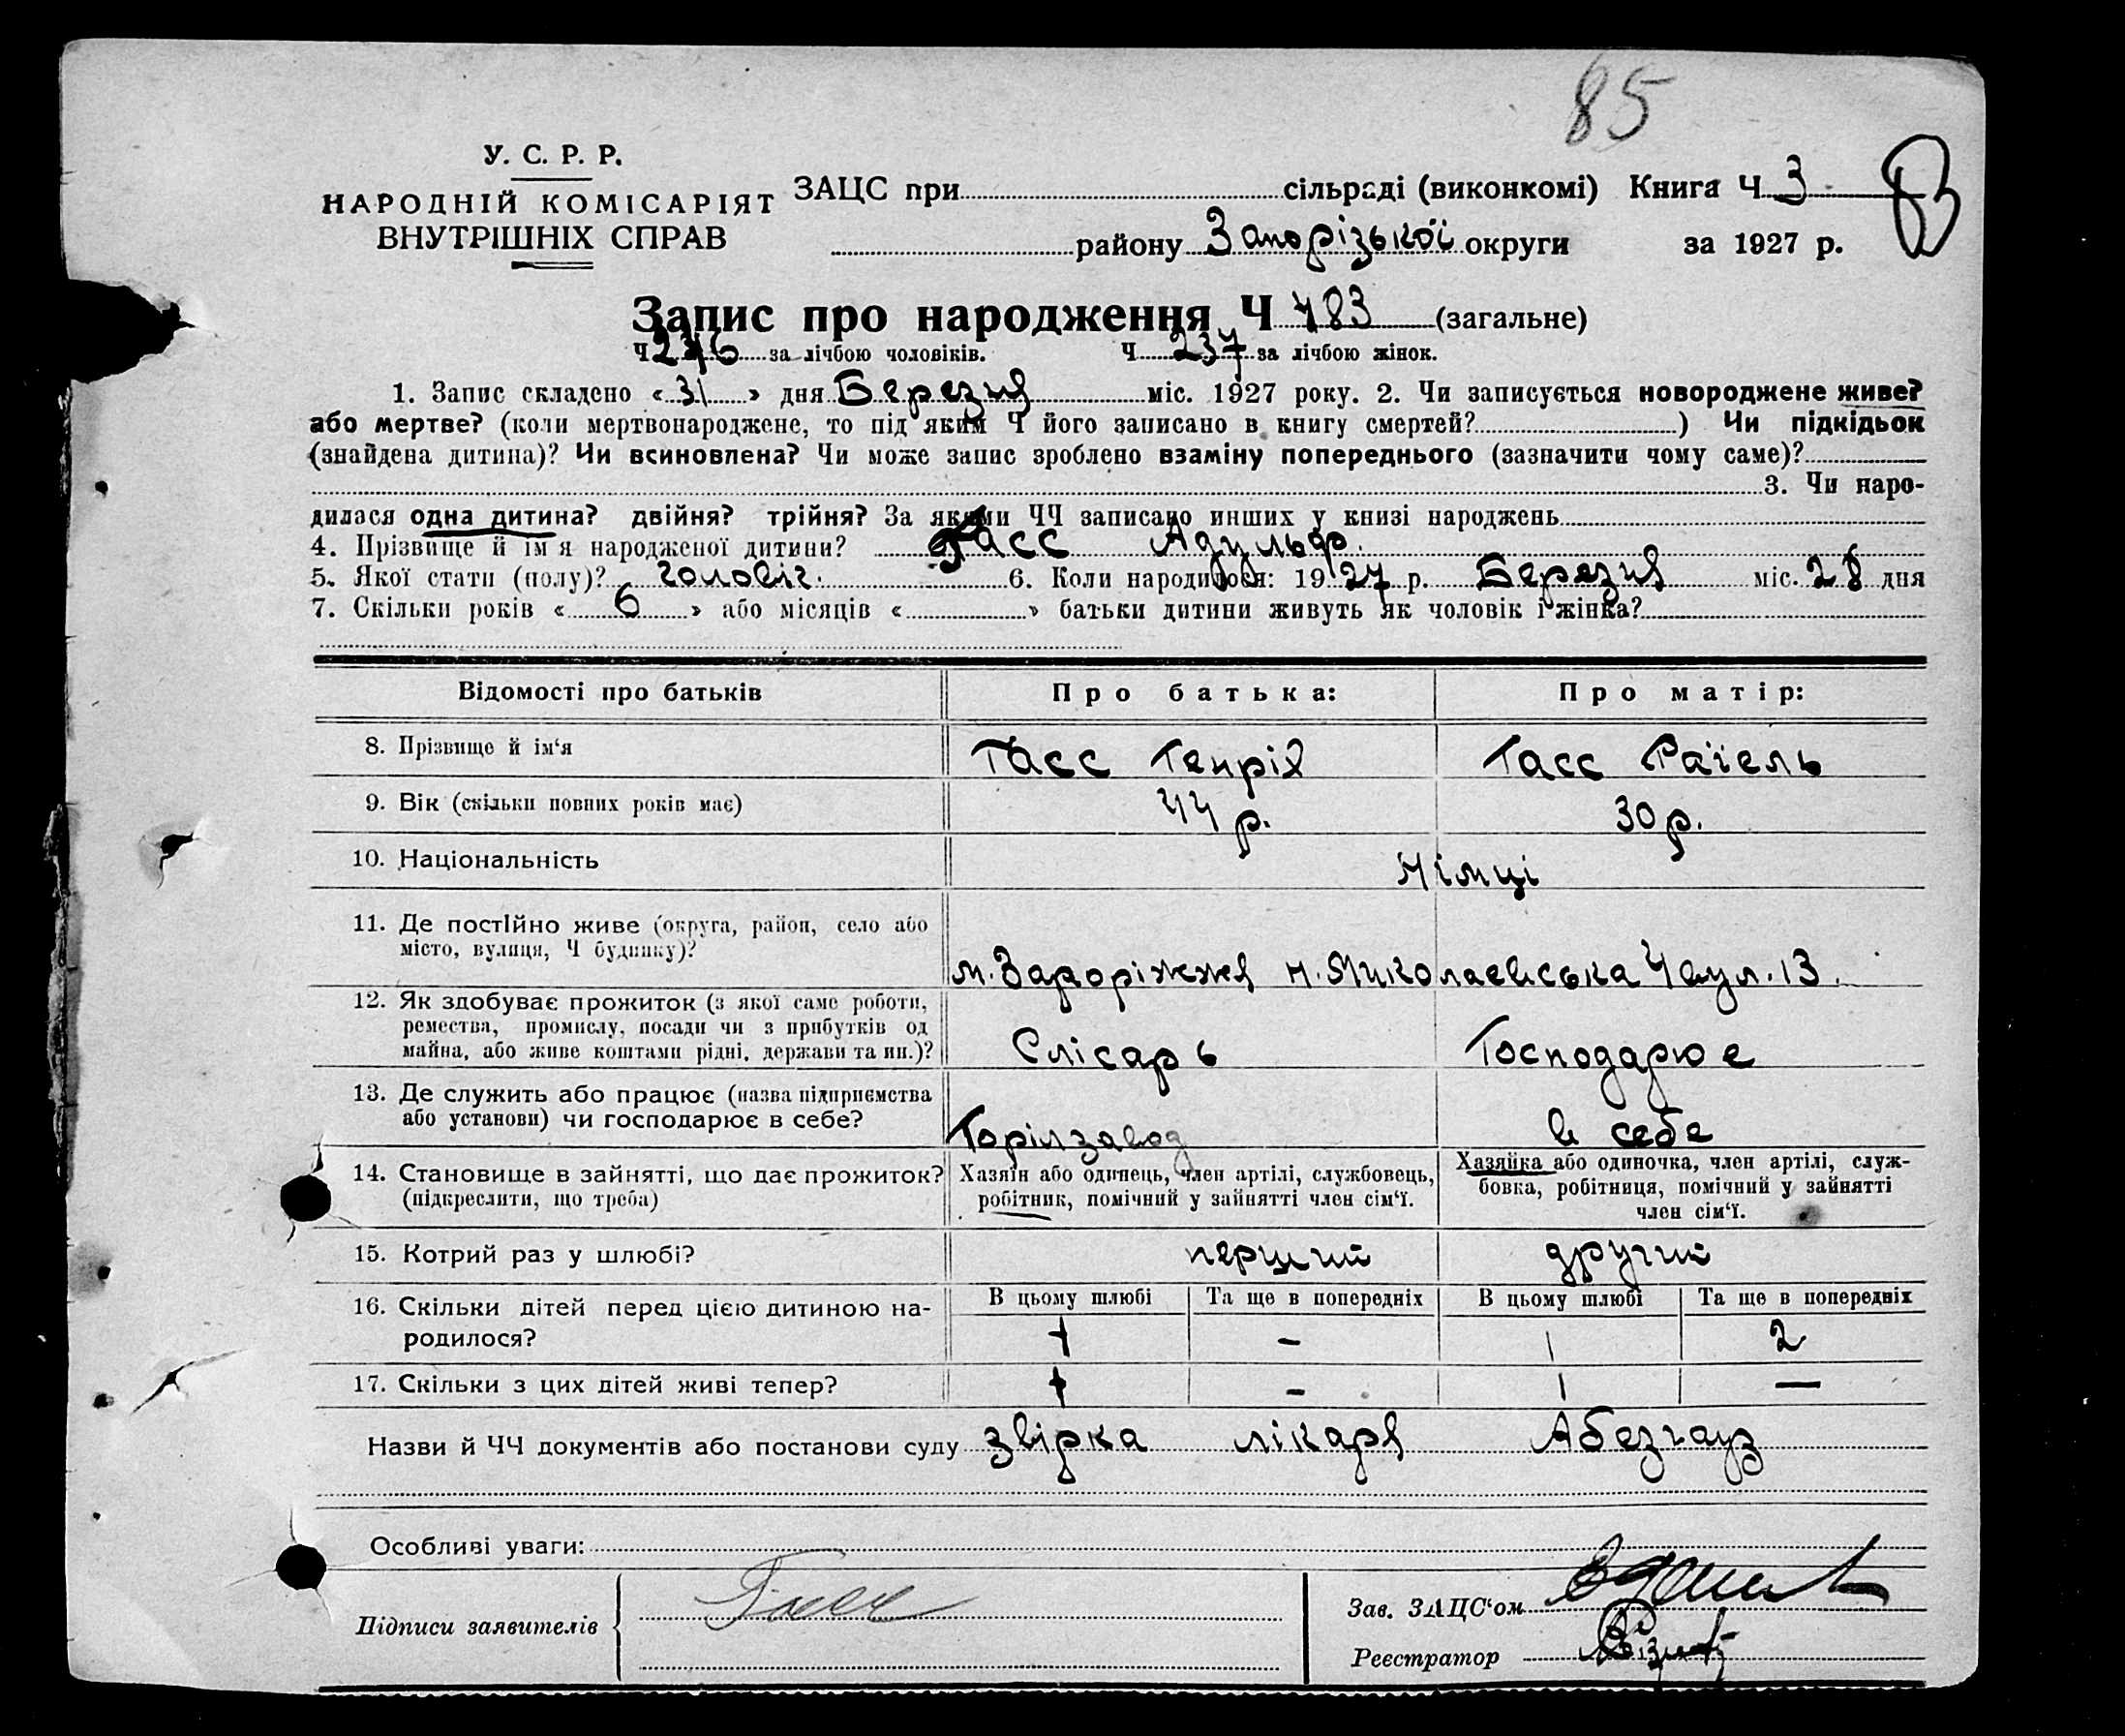 85
У. С. Р. Р.
НАРОДНІЙ КОМІСАРІЯТ
ВНУТРІШНІХ СПРАВ
ЗАЦС при сільраді (виконкомі) Книга Ч 3
83
району Запорізької округи за 1927 р.
Запис про народження Ч 483 (загальне)
Ч 246 за лічбою чоловіків. Ч 237 за лічбою жінок.
1. Запис складено « 31 » дня Березня міс. 1927 року. 2. Чи записується новороджене живе?
або мертве? (коли мертвонароджене, то під яким Ч його записано в книгу смертей? ) Чи підкідьок
(знайдена дитина)? Чи всиновлена? Чи може запис зроблено взаміну попереднього (зазначити чому саме)?
3. Чи наро-
дилася одна дитина? двійня? трійня? За якими ЧЧ записано инших у книзі народжень
4. Прізвище й ім'я народженої дитини? Гасс Адульф.
5. Якої стати (полу)? чоловіч. 6. Коли народилося: 1927 р. Березня міс. 28 дня
7. Скільки років « 6 » або місяців « » батьки дитини живуть як чоловік і жінка?
Відомості про батьків Про батька: Про матір:
8. Прізвище й ім‘я Гасс Генріх Гасс Раїель
9. Вік (скільки повних років має) 44 р. 30 р.
10. Національність Німці
11. Де постІйно живе (округа, район, село або
місто, вулиця, Ч будинку)?
м. Запоріжжя Н. Миколаевська 13.
12. Як здобуває прожиток (з якої саме роботи,
ремества, промислу, посади чи з прибутків од
майна, або живе коштами рідні, держави та ин.)?
Слісарь Господарює
13. Де служить або працює (назва підприємства
або установи) чи господарює в себе?
Горілзавод в себе
14. Становище в зайнятті, що дає прожиток?
(підкреслити, що треба)
Хазяїн або одинець, член артілі, службовець,
робітник, помічний у зайнятті член сім‘ї.
Хазяйка або одиночка, член артілі, служ-
бовка, робітниця, помічний у зайнятті
член сім‘ї.
15. Котрий раз у шлюбі? перший другий
16. Скільки дітей перед цією дитиною на-
родилося?
В цьому шлюбі Та ще в попередніх В цьому шлюбі Та ще в попередніх
1 – 1 2
17. Скільки з цих дітей живі тепер? 1 – 1 —
Назви й ЧЧ документів або постанови суду звірка лікаря Абезгауз
Особливі уваги:
Підписи заявителів Гасс
Зав. ЗАЦС‘ом
Реєстратор